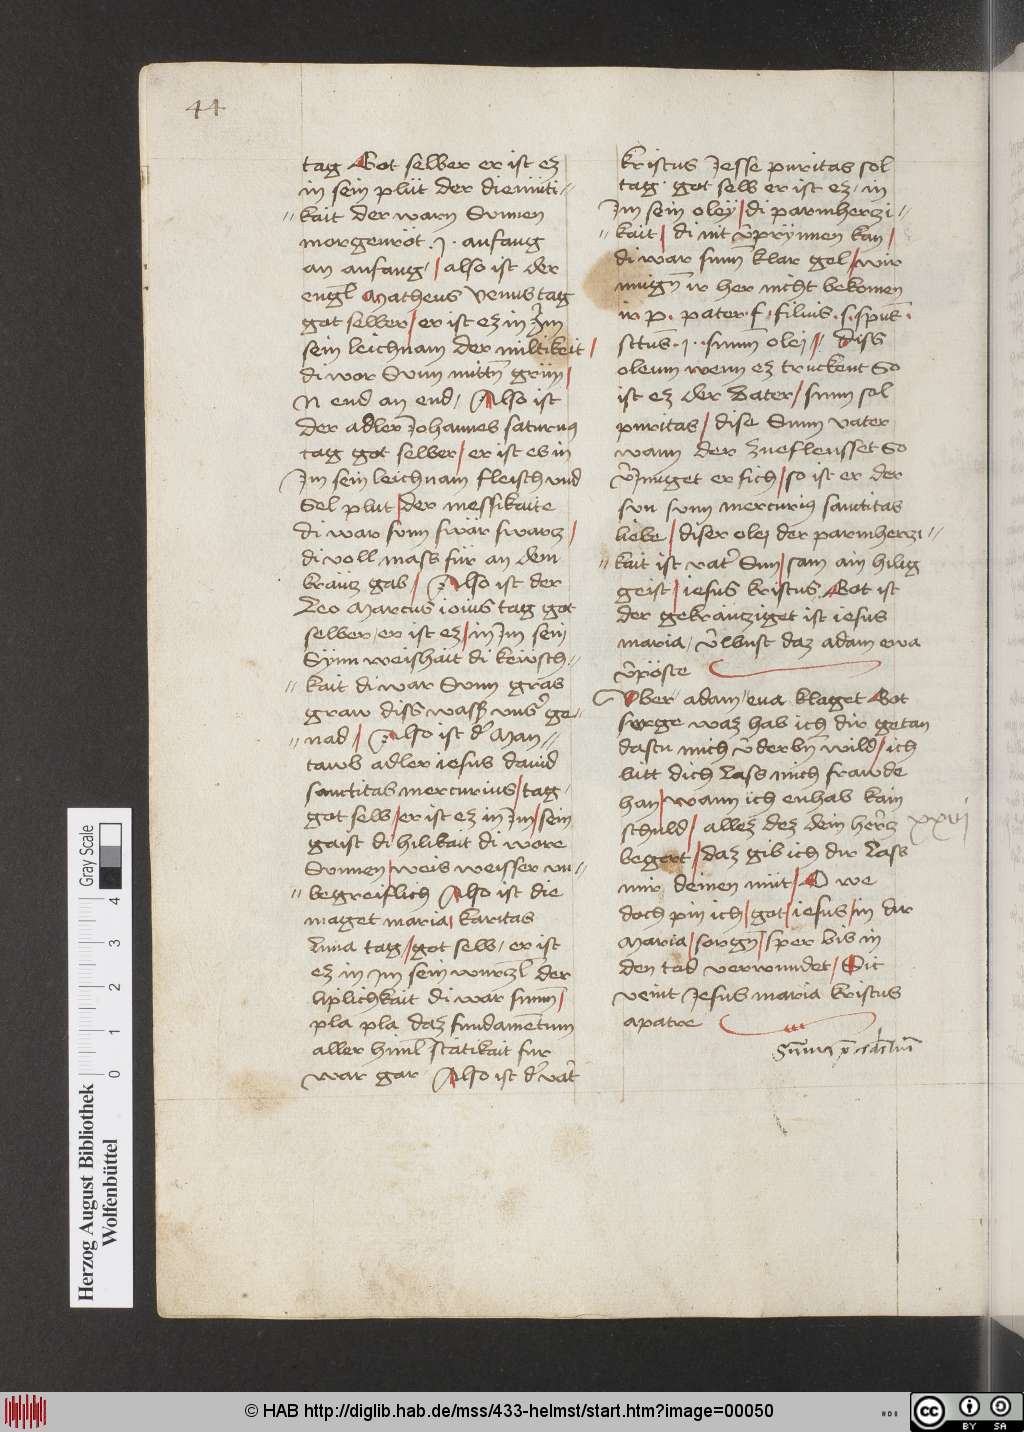 44
tag Got selber er ist ez
in sein plüt der diemüti〃
〃kait der warn Sunnen
morgenröt .J. anfang
an anfang / also ist der
engl̄ Matheus Venus tag
got selber / er ist ez in Jm
sein leichnam der miltikeit /
di war Sunn mittn̄ grün /
N end an end / Also ist
der adler Johannes saturnꝯ
tag got selber / er ist es in
Jm sein leichnam fleisch und
Sel plut / der messikaite
di war sunn swär swarz /
di voll mass für an dem
kräuz gab / Also ist der
Leo Marcus iouis tag got
selber / er ist ez / in Jm sein
Synn weishait di kewsch〃
〃kait di war Sunn gras
graw diss wass vnser ge〃
〃nad / Also ist d' Man〃
tawb adler iesus dauid
sanctitas mercurius / tag
got selb / er ist ez in Jm / sein
gaist di hilikait di wore
Sunnen / weis weisser vn〃
〃begreiflich Also ist die
maget maria / karitas
Luna tag / got selb / er ist
ez in Jm sein wurzl̄ der
liplichkait di war sunn̄ /
pla pla daz fundamentum
aller himl̄ stätikait fur
war gar Also ist d' vat'
kristus Jesse puritas sol
tag · got selb er ist ez · in
Jm sein oleÿ / di parmherzi〃
〃kait / di nit v̄prynnen kan /
di war sunn̄ klar gel / wir
mugn̄ ir her nicht bekomen
ir p. pater . f . filius . s . spūs .
sctūs . J . sunn̄ olej / diss
oleum wenn ez truckent So
ist ez der Vater / sunn sol
puritas / dise Sunn vater
wann der zuefleusset So
v̄muget er sich / so ist er der
sun sunn mercuriꝯ sanctitas
liebe / diser olej der parmherzi〃
〃kait ist vat' Sun / sam ain hilig
geist / iesus kristus Got ist
der gekräutziget ist iesus
maria / v̄lbust daz adam eva
v̄pöste
Uber adam / eua klaget Got
sorge waz hab ich dir getan
dastu mich v̄derbn̄ wild / ich
bitt dich Lass mich frawde
han / wann ich enhab kain
schuld / allez dez dein hercz
begert / daz gib ich dir Lass
mir deinen müt / O we
doch pin ich / got / iesus / in dir
Maria / sorgn̄ / sper bis in
den tod verwundet / Dic
veint Jesus maria kristus
apatre
xxvij
Herzog August Bibliothek
Wolfenbüttel
Gray Scale
0 1 2 3 4
© HAB http://diglib.hab.de/mss/433-helmst/start.htm?image=00050
cc BY SA